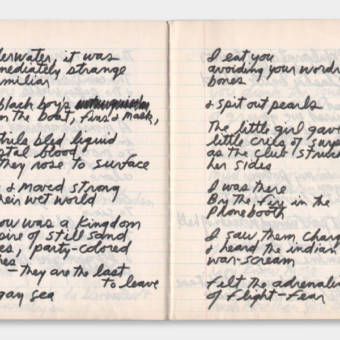 derwater, it was
mediately strange
familiar
black boys
m the boat, fins & mask,
trils bled liquid
stal blood
they rose to surface
e & moved strong
heir wet world
ow was a kingdom
sire of still sand
es, party-colored
hes
- They are the last
to leave
gay sea
I eat you
avoiding your wordy
bones
& spit out pearls
The little girl gave
little cries of surp
as the club struck
her sides
I was there
By the fire in the
Phonebooth
I saw them charg
& heard the indian
war-scream
Felt the adrenalin
of Flight-Fear